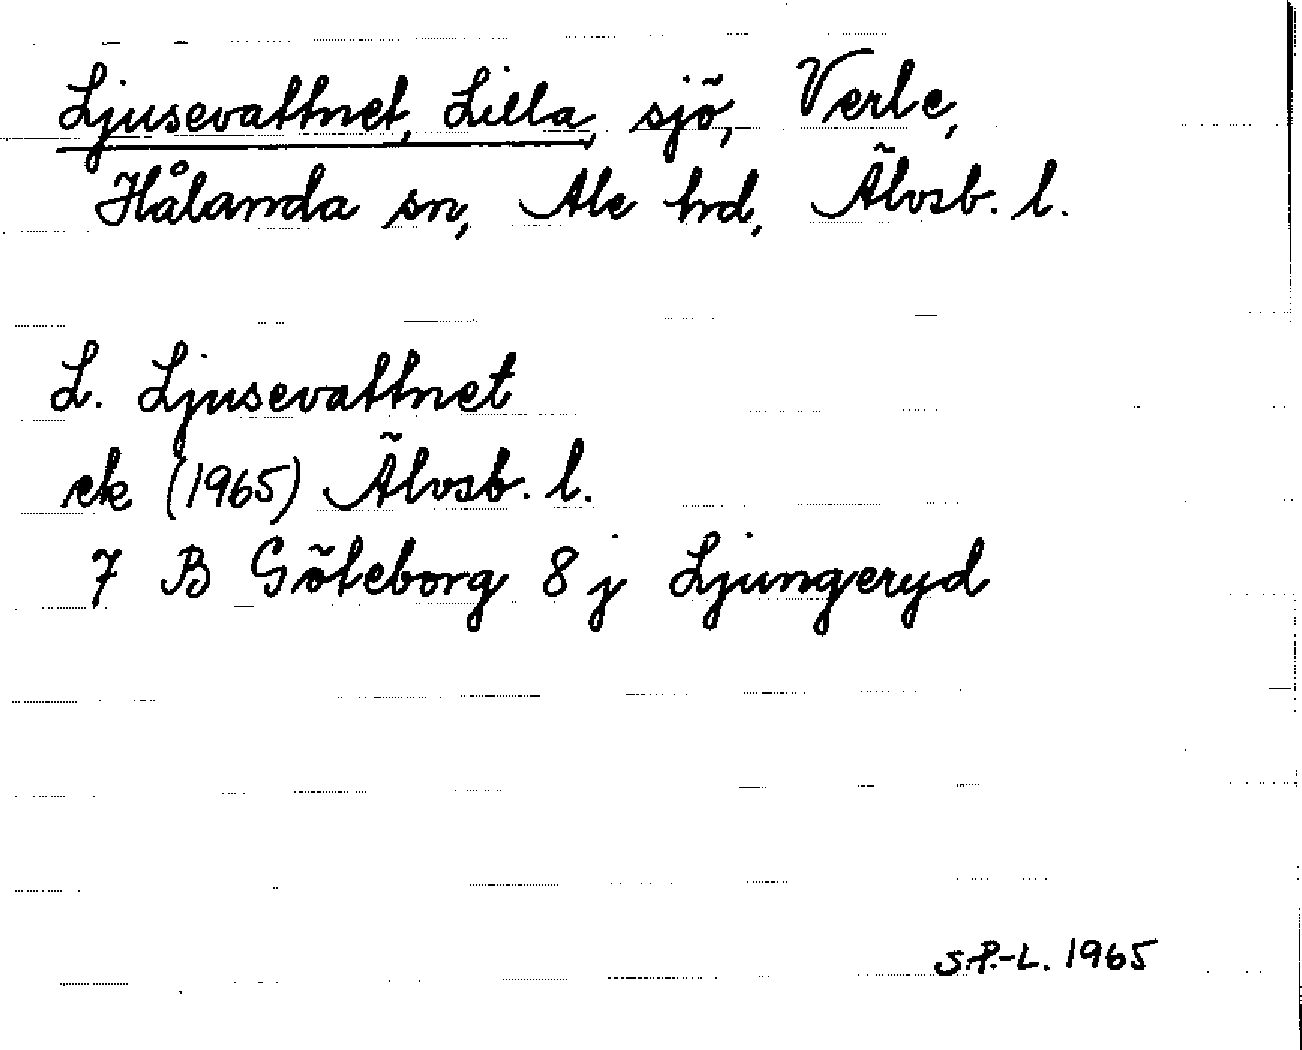 Ljusevattnet, Lilla, sjö, Verle,
Hålanda sn, Ale hd, Älvsb. l.
L. Ljusevattnet
ek (1965) Älvsb. l.
7 B Göteborg 8 j Ljungeryd
S.P.-L. 1965